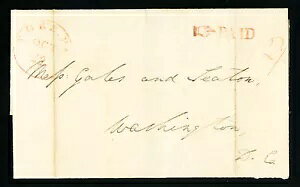 PAID
Mess. Gales and Seaton,
Washington,
D. C.